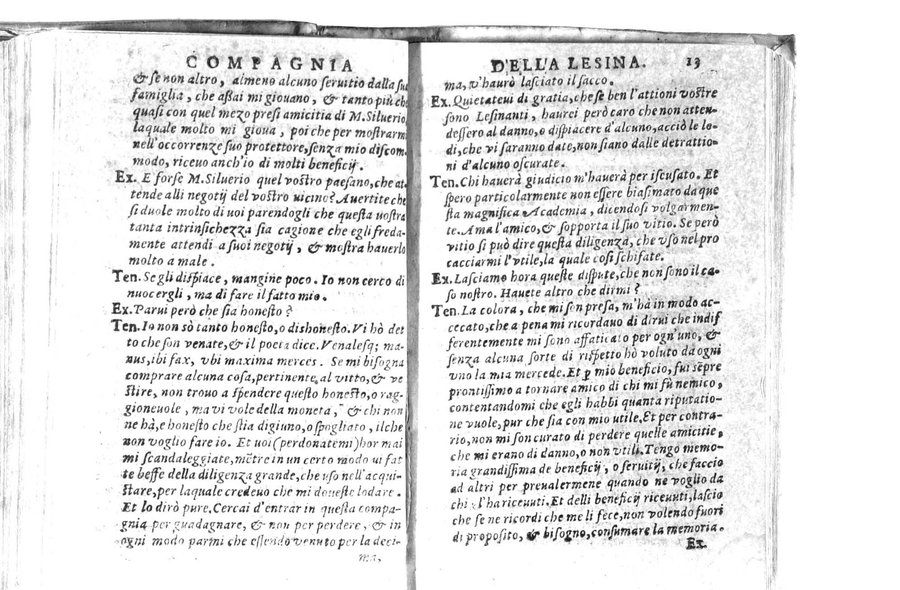 COMPAGNIA
& se non altro, almeno alcuno seruitio dalla sua
famiglia, che aßai mi giouano, & tanto più che
quasi con quel mezo presi amicitia di M. Siluerio,
laquale molto mi gioua, poi che per mostrarmi
nell'occorrenze suo protettore, senza mio discom
modo, riceuo anch'io di molti beneficij.
Ex. E forse M. Siluerio quel vostro paesano, che at
tende alli negotij del vostro uicino? Auertite che
si duole molto di uoi parendogli che questa uostra
tanta intrinsichezza sia cagione che egli freda-
mente attendi a suoi negotij, & mostra hauerlo
molto a male.
Ten. Se gli dispiace, mangine poco. Io non cerco di
nuocergli, ma di fare il fatto mio.
Ex. Parui però che sia honesto?
Ten. Io non sò tanto honesto, o dishonesto. Vi hò det
to che son venate, & il poeta dice. Venalesq; ma-
nus, ibi fax, vbi maxima merces. Se mi bisogna
comprare alcuna cosa, pertinente al vitto, & ve
stire, non trouo a spendere questo honesto, o rag-
gioneuole, ma vi vole della moneta, & chi non
ne hà, e honesto che stia digiuno, o spogliato, ilche
non voglio fare io. Et uoi (perdonatemi) hor mai
mi scandaleggiate, mētre in un certo modo ui fat
te beffe della diligenza grande, che uso nell'acqui-
stare, per laquale credeuo che mi doueste lodare.
Et lo dirò pure. Cercai d'entrar in questa compa-
gnia per guadagnare, & non per perdere, & in
ogni modo parmi che essendo venuto per la deci-
ma,
DELL'A LESINA. 13
ma, v'haurò lasciato il sacco.
Ex. Quietateui di gratia, che se ben l'attioni vostre
sono Lesinanti, haurei però caro che non atten-
dessero al danno, o dispiacere d'alcuno, acciò le lo-
di, che vi saranno date, non siano dalle detrattio-
ni d'alcuno oscurate.
Ten. Chi hauerà giudicio m'hauerà per iscusato. Et
spero particolarmente non essere biasimato da que
sta magnifica Academia, dicendosi volgarmen-
te. Ama l'amico, & sopporta il suo vitio. Se però
vitio si può dire questa diligenza, che vso nel pro
cacciarmi l'vtile, la quale cosi schifate.
Ex. Lasciamo hora queste dispute, che non sono il ca-
so nostro. Hauete altro che dirmi?
Ten. La colora, che mi son presa, m'hà in modo ac-
cecato, che a pena mi ricordauo di dirui che indif
ferentemente mi sono affaticato per ogn'uno, &
senza alcuna sorte di rispetto hò voluto da ogni
vno la mia mercede. Et ꝑ mio beneficio, fui sēpre
prontissimo a tornare amico di chi mi fù nemico,
contentandomi che egli habbi quanta riputatio-
ne vuole, pur che sia con mio utile. Et per contra-
rio, non mi son curato di perdere quelle amicitie,
che mi erano di danno, o non vtili. Tengo memo-
ria grandissima de beneficij, o seruitij, che faccio
ad altri per preualermene quando ne voglio da
chi l'ha riceuuti. Et delli beneficij riceuuti, lascio
che se ne ricordi che me li fece, non volendo fuori
di proposito, & bisogno, consumare la memoria.
Ex.